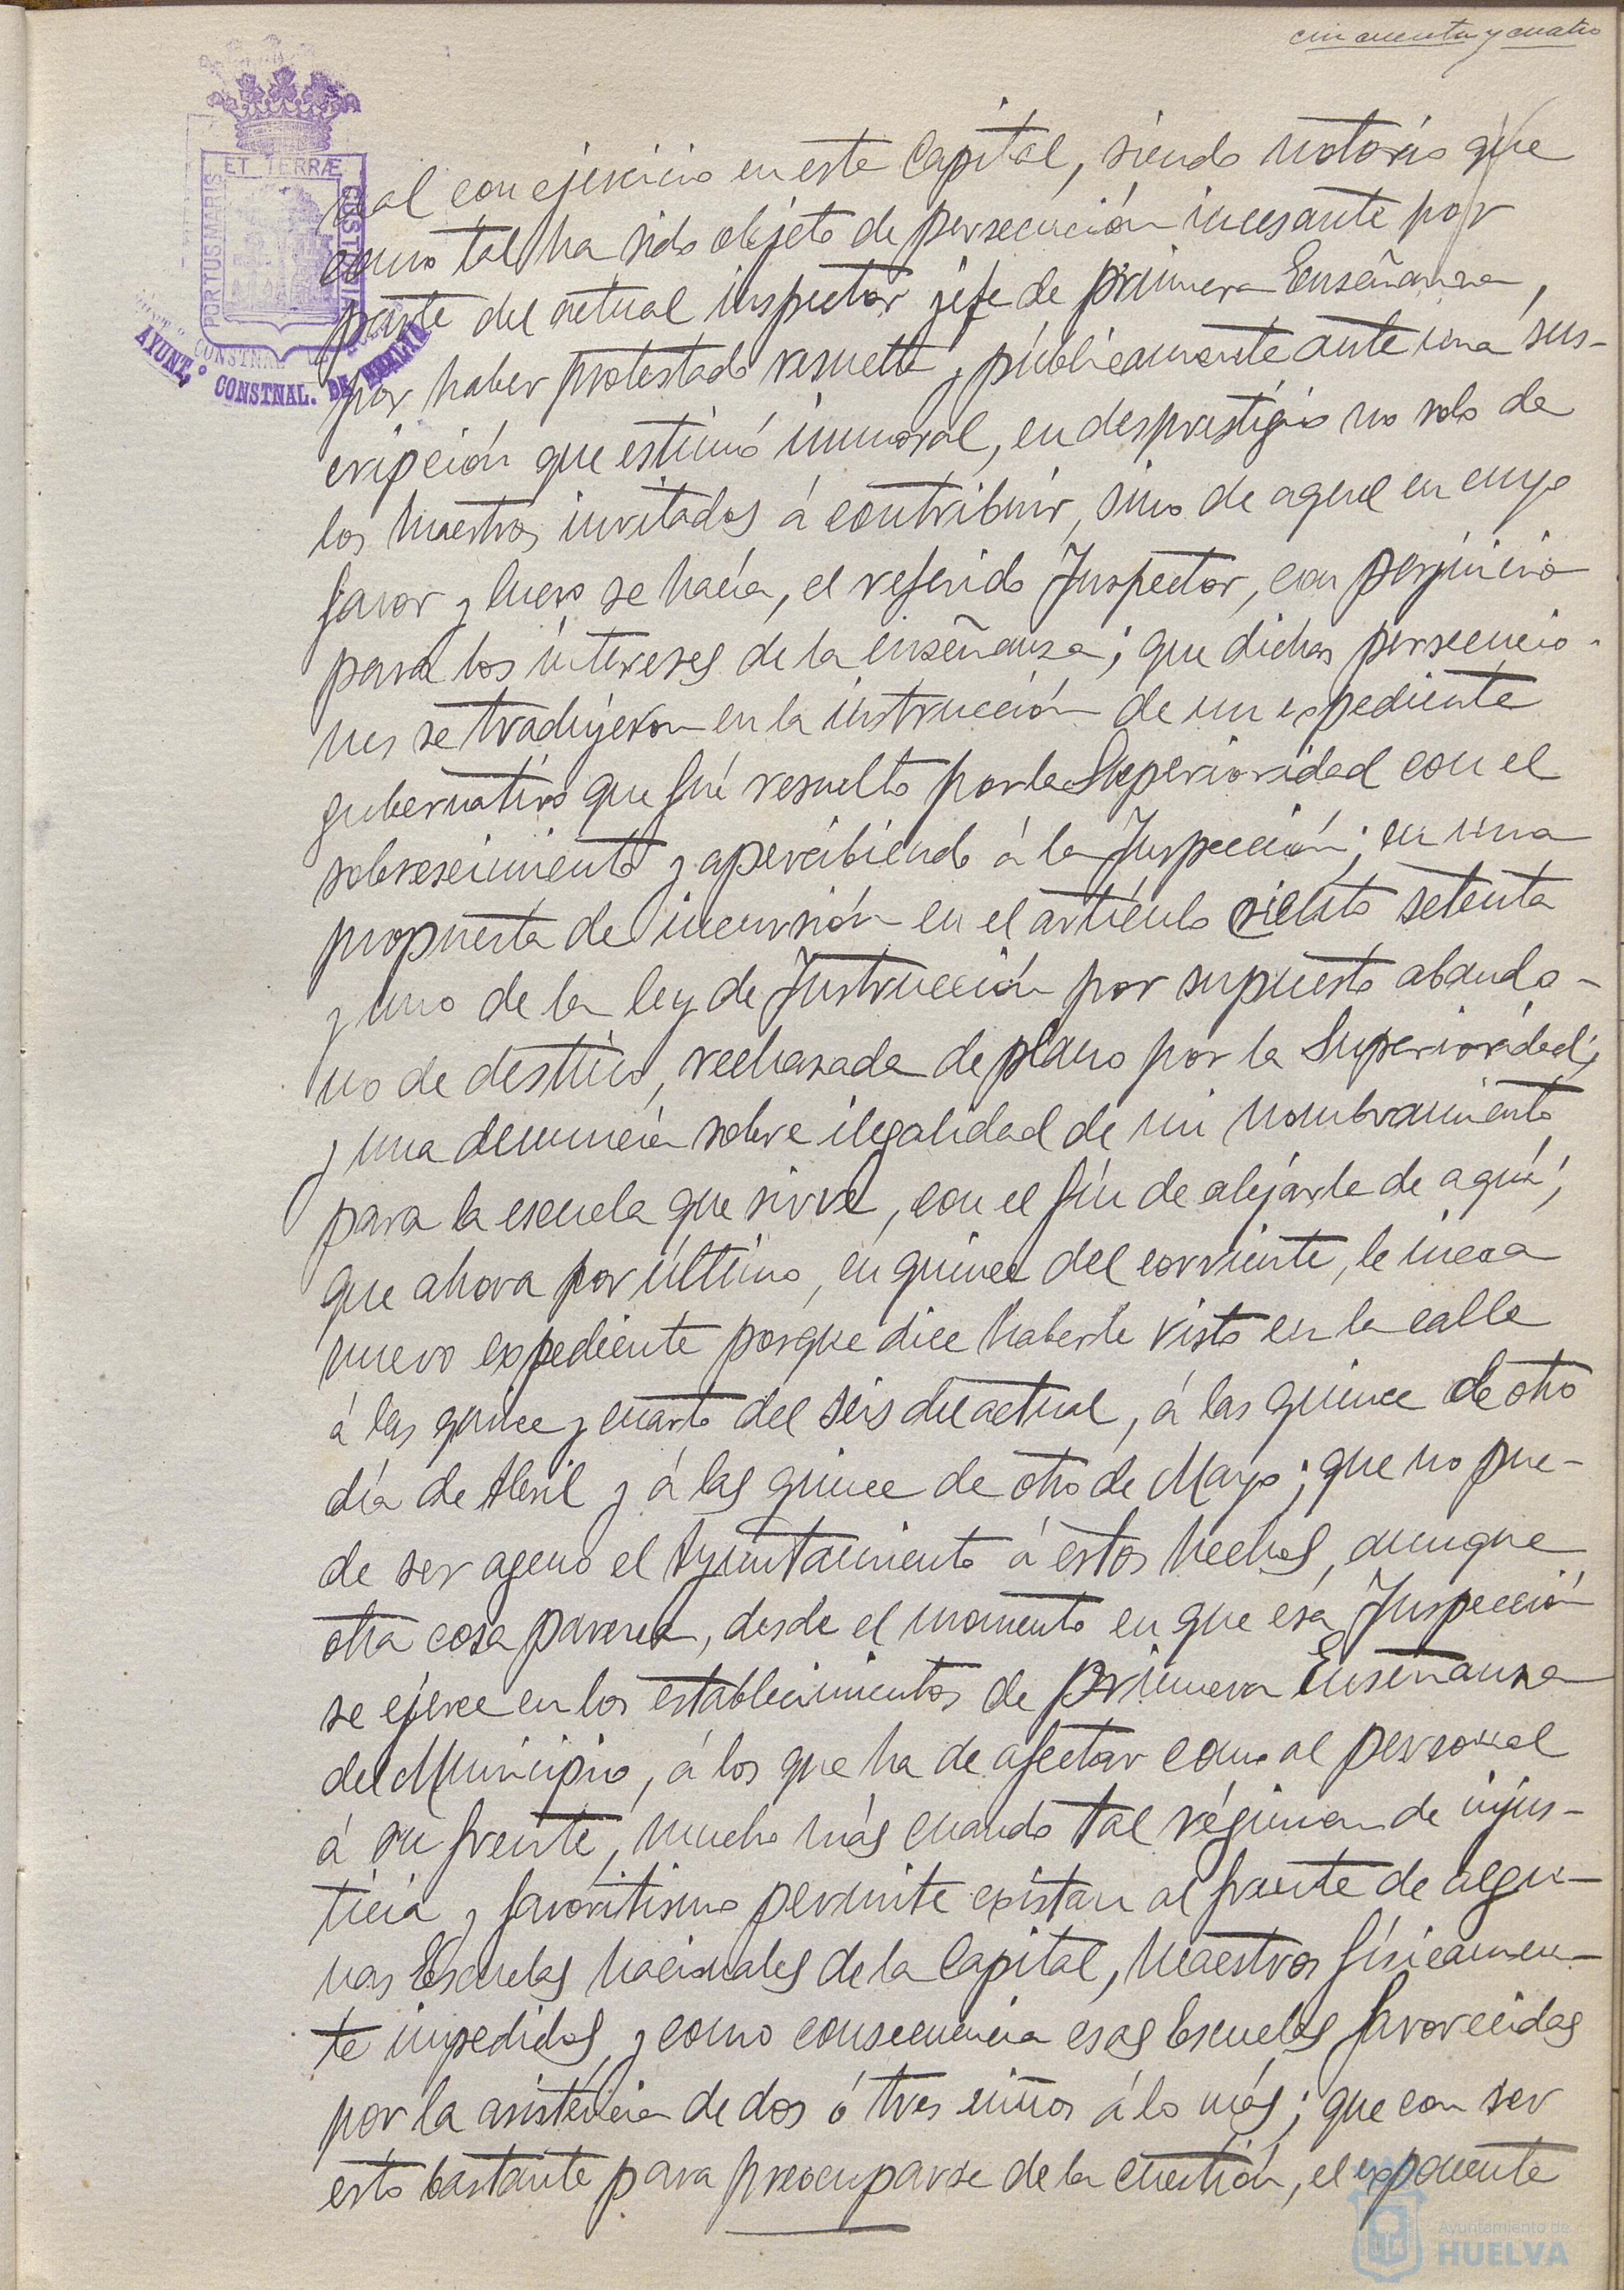 cincuenta y cuatro
ET TERRÆ
PORTUS MARIS
CUSTODIA
AYUNT.º CONSTNAL. DE HUELVA
nal con ejercicio en esta Capital, siendo notorio que
como tal ha sido objeto de persecución incesante por
parte del actual inspector jefe de primera Enseñanza,
por haber protestado resuelta y públicamente ante una sus-
cripción que estimó inmoral, en desprestigio no solo de
los maestros invitados á contribuir, sino de aquel en cuyo
favor y lucro se hacía, el referido Inspector, con perjuicio
para los intereses de la enseñanza; que dichas persecucio-
nes se tradujeron en la instrucción de un expediente
gubernativo que fué resuelto por la Superioridad con el
sobreseimiento y apercibiendo á la Inspección; en una
propuesta de incursión en el artículo ciento setenta
y uno de la ley de Instrucción por supuesto abando-
no de destino, rechazada de plano por la Superioridad;
y una denuncia sobre ilegalidad de mi nombramiento
para la escuela que sirve, con el fin de alejarle de aquí;
que ahora por último, en quince del corriente, le incoa
nuevo expediente porque dice haberle visto en la calle
á las quince y cuarto del seis del actual, á las quince de otro
día de Abril y á las quince de otro de Mayo; que no pue-
de ser ageno el Ayuntamiento á estos hechos, aunque
otra cosa parezca, desde el momento en que esa Inspección
se ejerce en los establecimientos de primera Enseñanza
del Municipio, á los que ha de afectar como al personal
á su frente, mucho más cuando tal régimen de injus-
ticia y favoritismo permite existan al frente de algu-
nas Escuelas nacionales de la Capital, maestros físicamen-
te impedidos, y como consecuencia esas Escuelas favorecidas
por la asistencia de dos ó tres niños á lo más; que con ser
esto bastante para preocuparse de la cuestión, el exponente
Ayuntamiento de
HUELVA